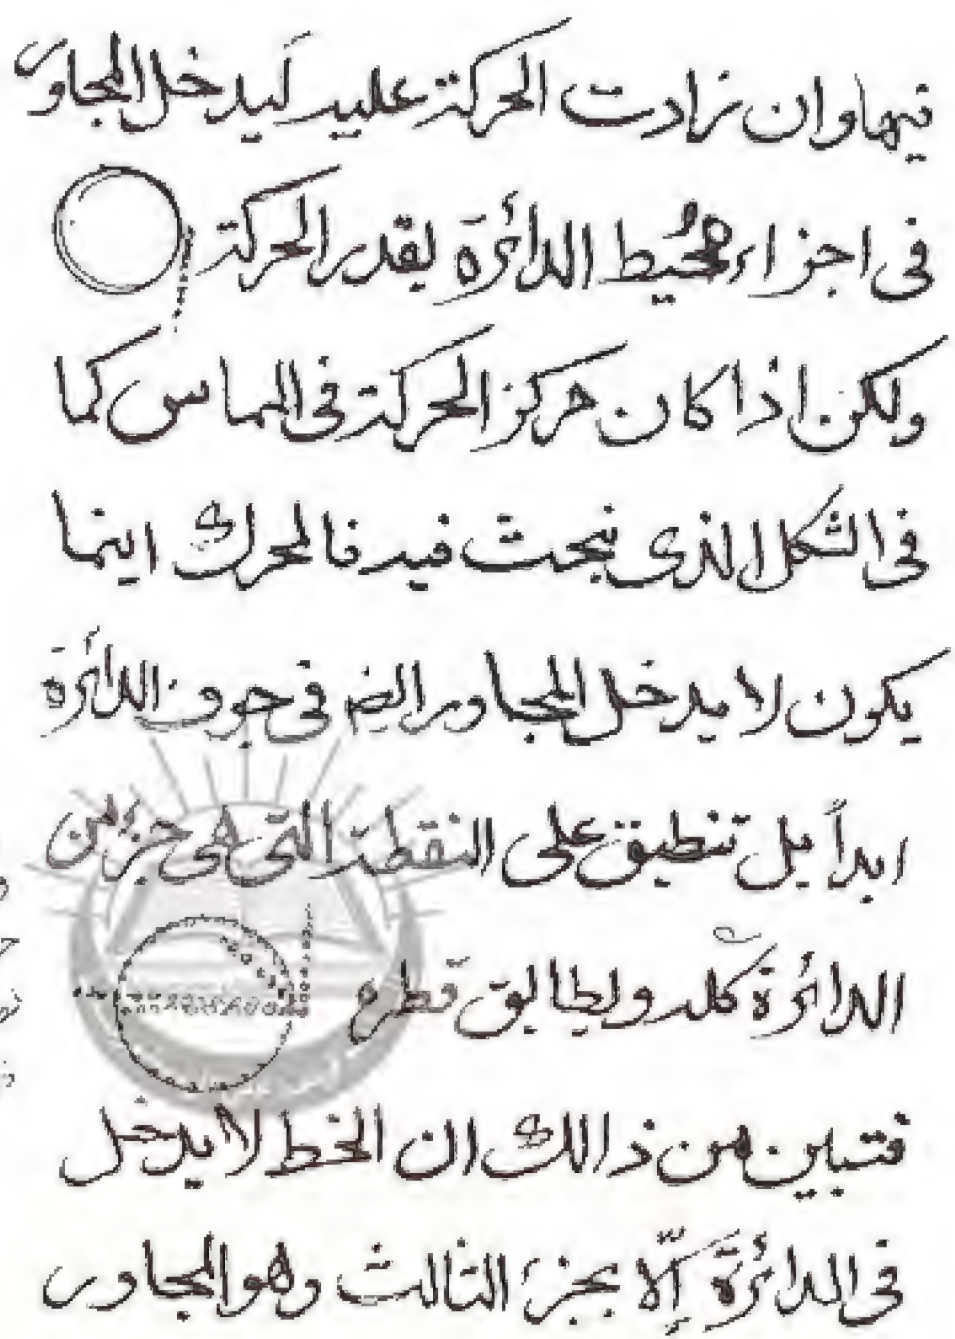 فيها وان زادت الحركة عليه ليدخل المجاور
فى اجزاء محُيط الدائرة بقدر الحركة
ولكن اذا كان مركز الحركة فى المماس كما
فى الشكل الذى نبحث فيه فالمحرك اينما
يكون لا يدخل المجاور ايضه فى جوف الدائرة
ابداً بل تنطبق على النقطة التى هى جزء من
الدائرة كله ويطابق قطره
فتبين من ذالك ان الخط لا يدخل
فى الدائرة إلّا بجزء الثالث وهو المجاور